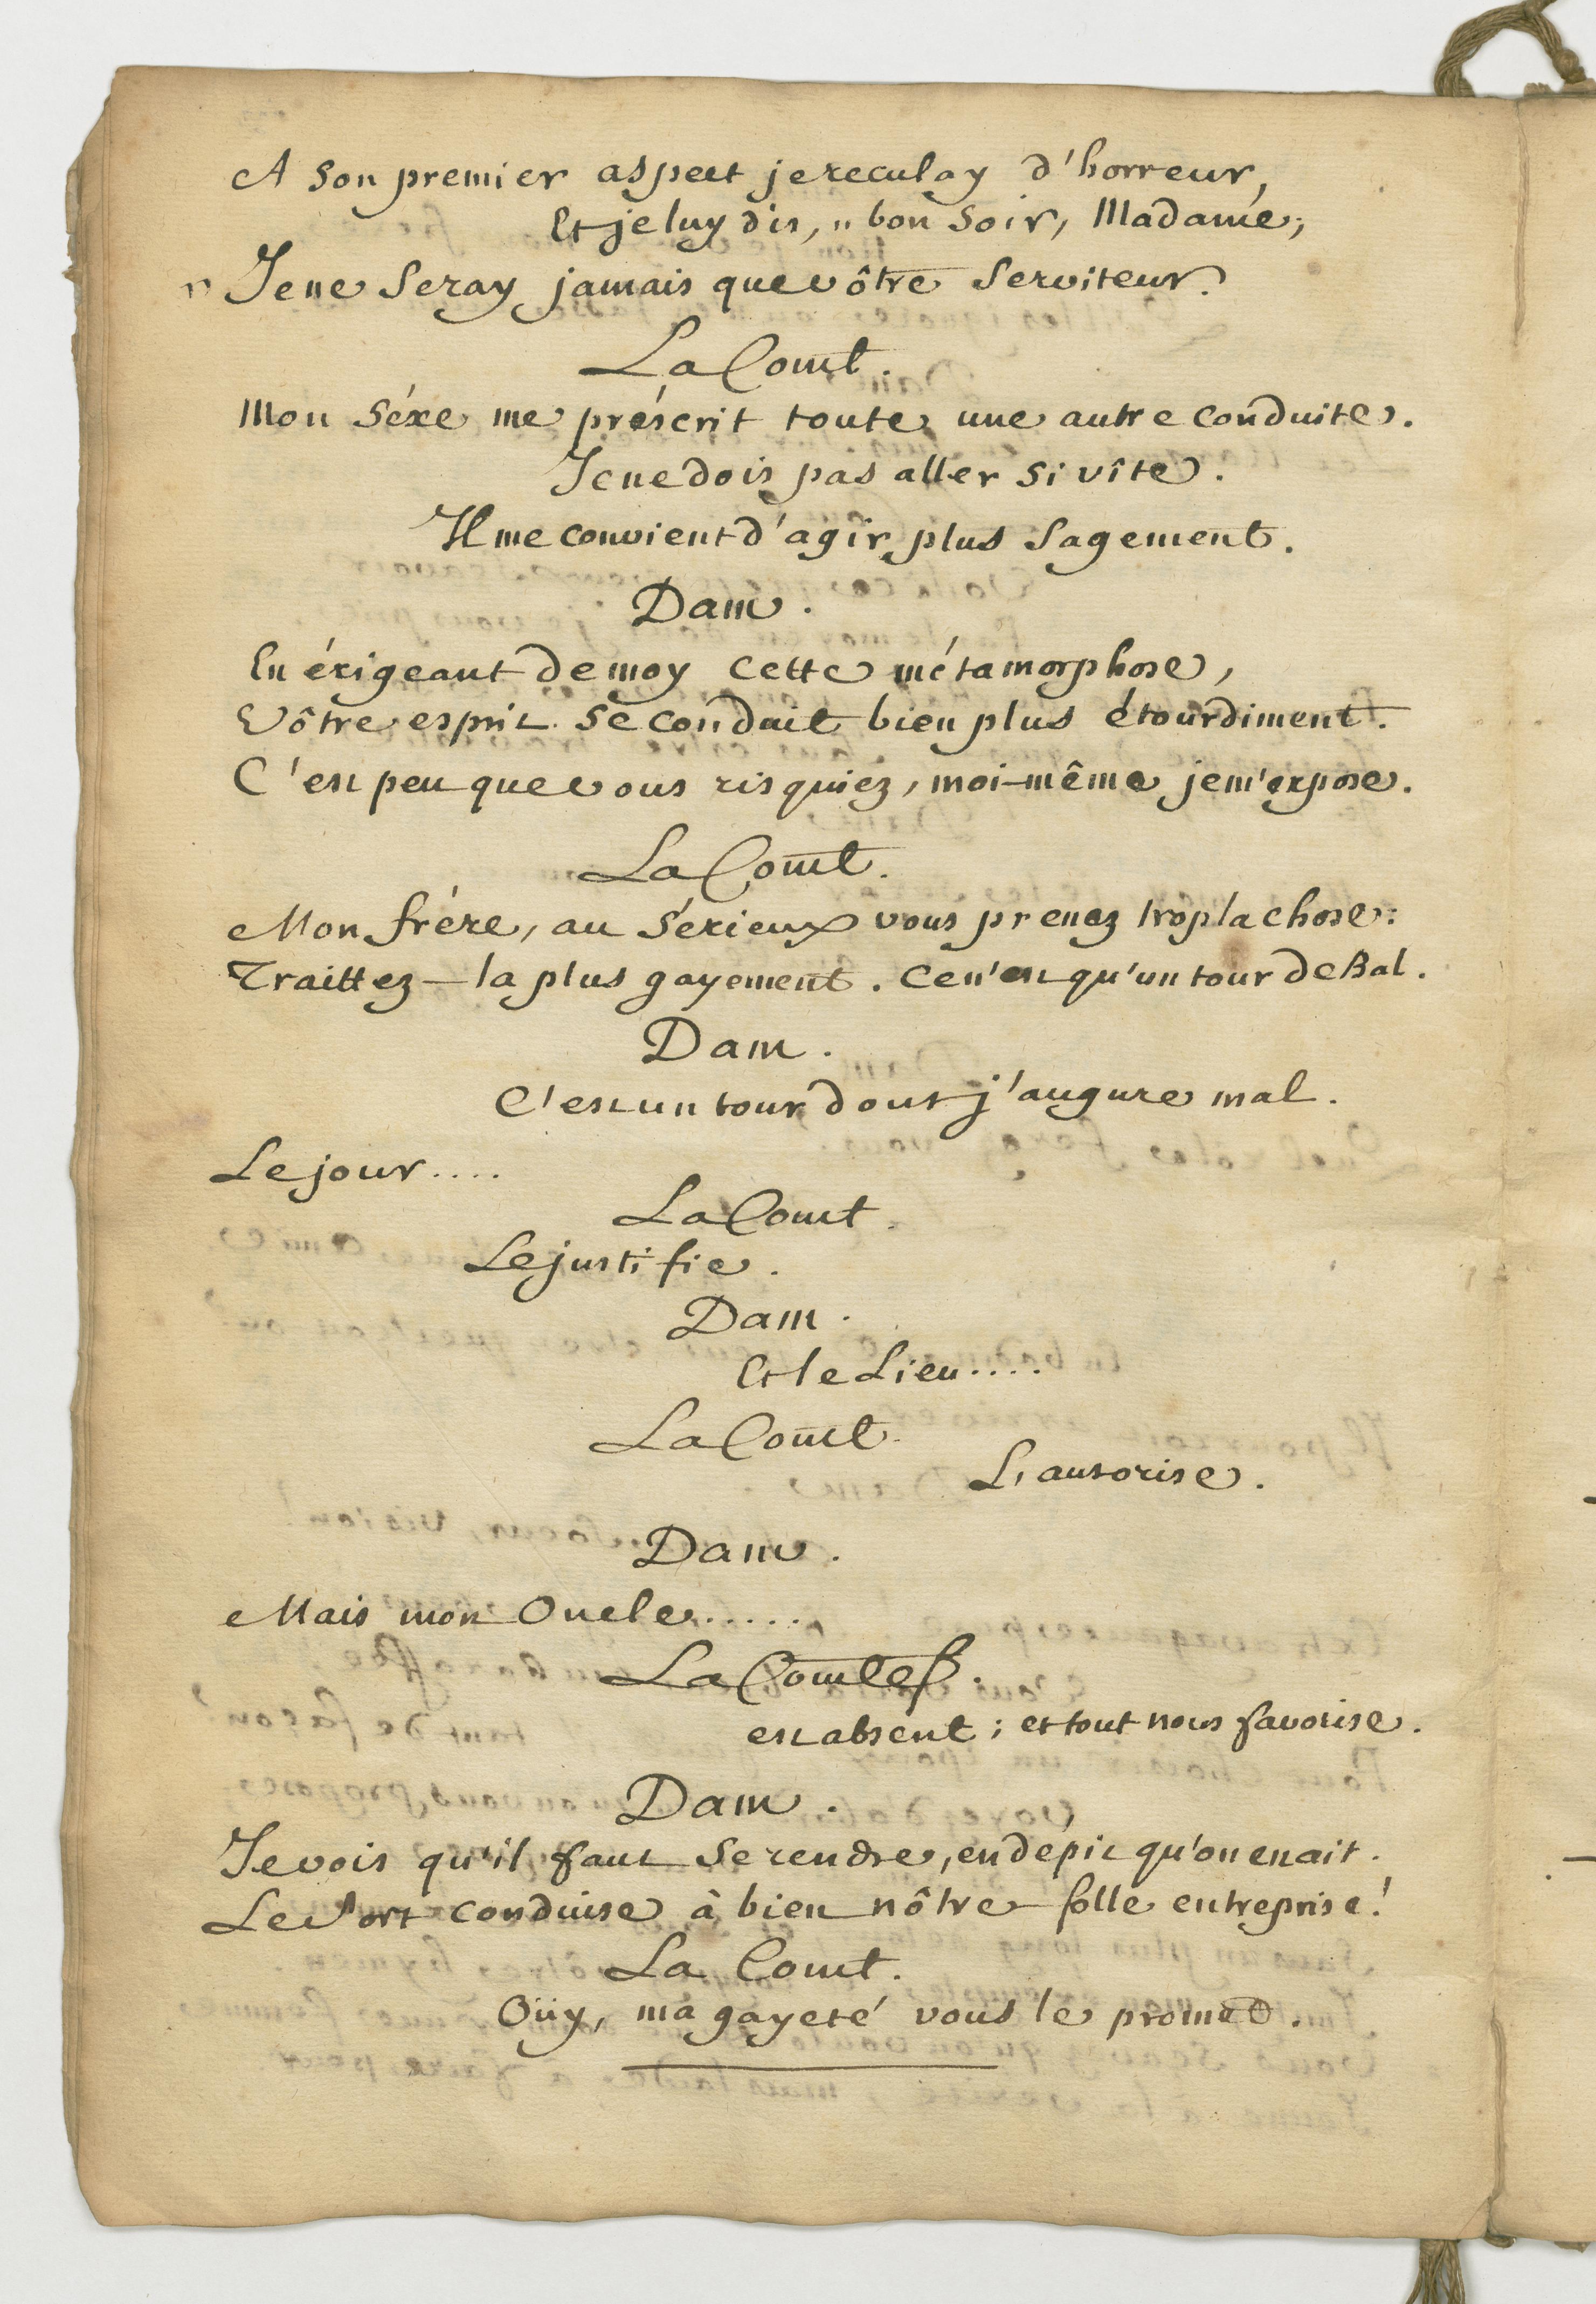 A son premier aspect je reculay d'horreur,
Et je luy dis, „ bon soir, Madame;
„ Je ne seray jamais que vôtre serviteur.
La Comt.
Mon séxe me préscrit toute une autre conduite.
Je ne dois pas aller si vîte.
Il me convient d'agir plus sagement.
Dam.
En érigeant de moy cette métamorphose,
Vôtre esprit se conduit bien plus étourdiment.
C'est peu que vous risquiez, moi-même je m'expose.
La Comt.
Mon frére, au sérieux vous prenez trop la chose:
Traittez-la plus gayement. Ce n'est qu'un tour de Bal.
Dam.
C'est un tour dont j'augure mal.
Le jour....
La Comt.
Le justifie.
Dam.
Et le Lieu....
La Comt.
L'autorise.
Dam.
Mais mon Oncle.....
La Comteß.
est absent; et tout nous favorise.
Dam.
Je vois qu'il faut se rendre, en dépit qu'on en ait.
Le sort conduise à bien nôtre folle entreprise!
La Comt.
Oüy, ma gayeté vous le promet.